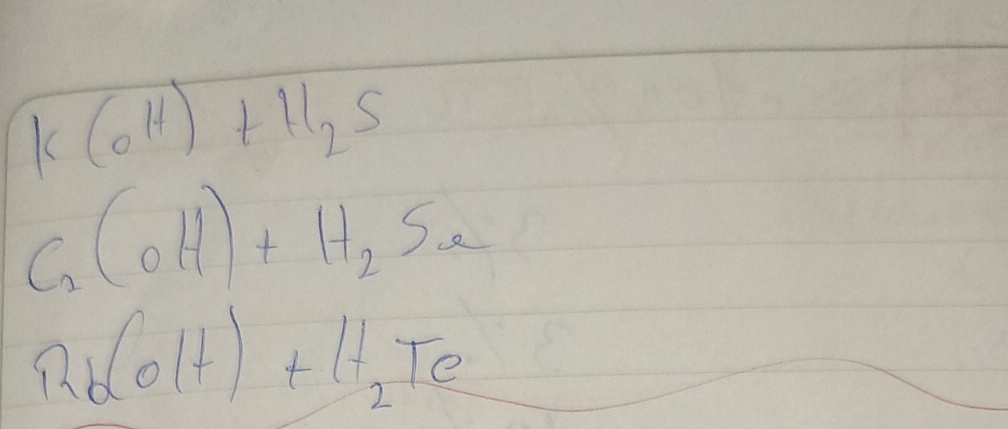 K(OH) + H₂S
Cs(OH) + H₂Se
Rb(OH) + H₂Te